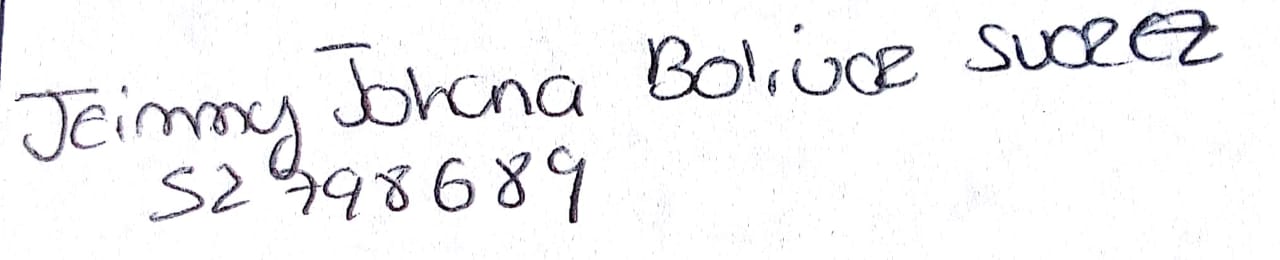 Jeimmy Johana Bolivar Suarez
52798689